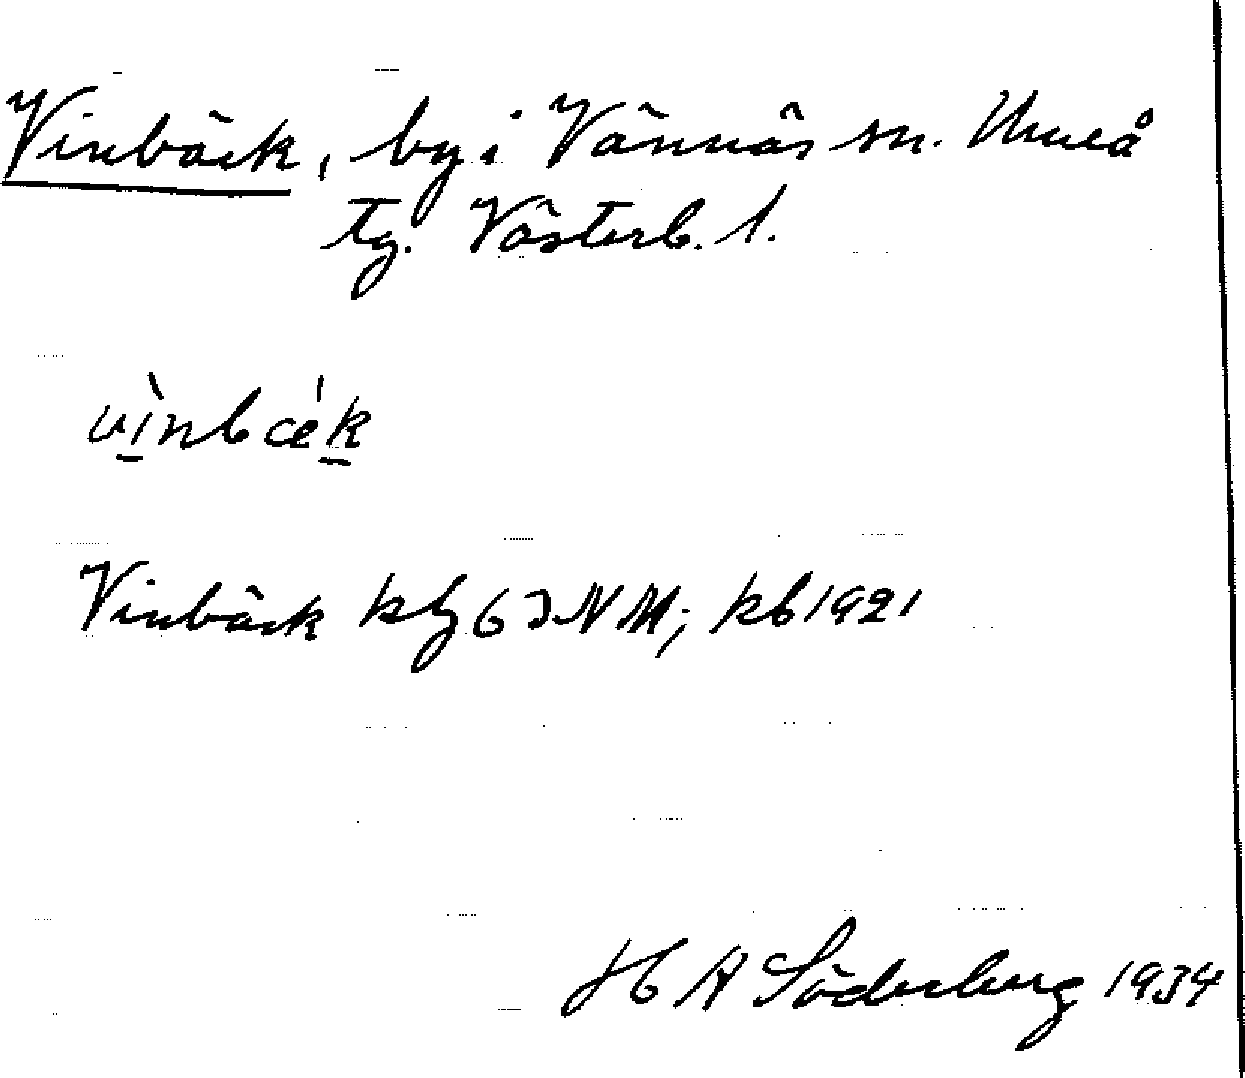 Vinbäck, by i Vännäs sn. Umeå
tg. Västerb. l.
vìnbæ̀k
Vinbäck kbg 63 NM; kb 1921
H A Söderberg 1934